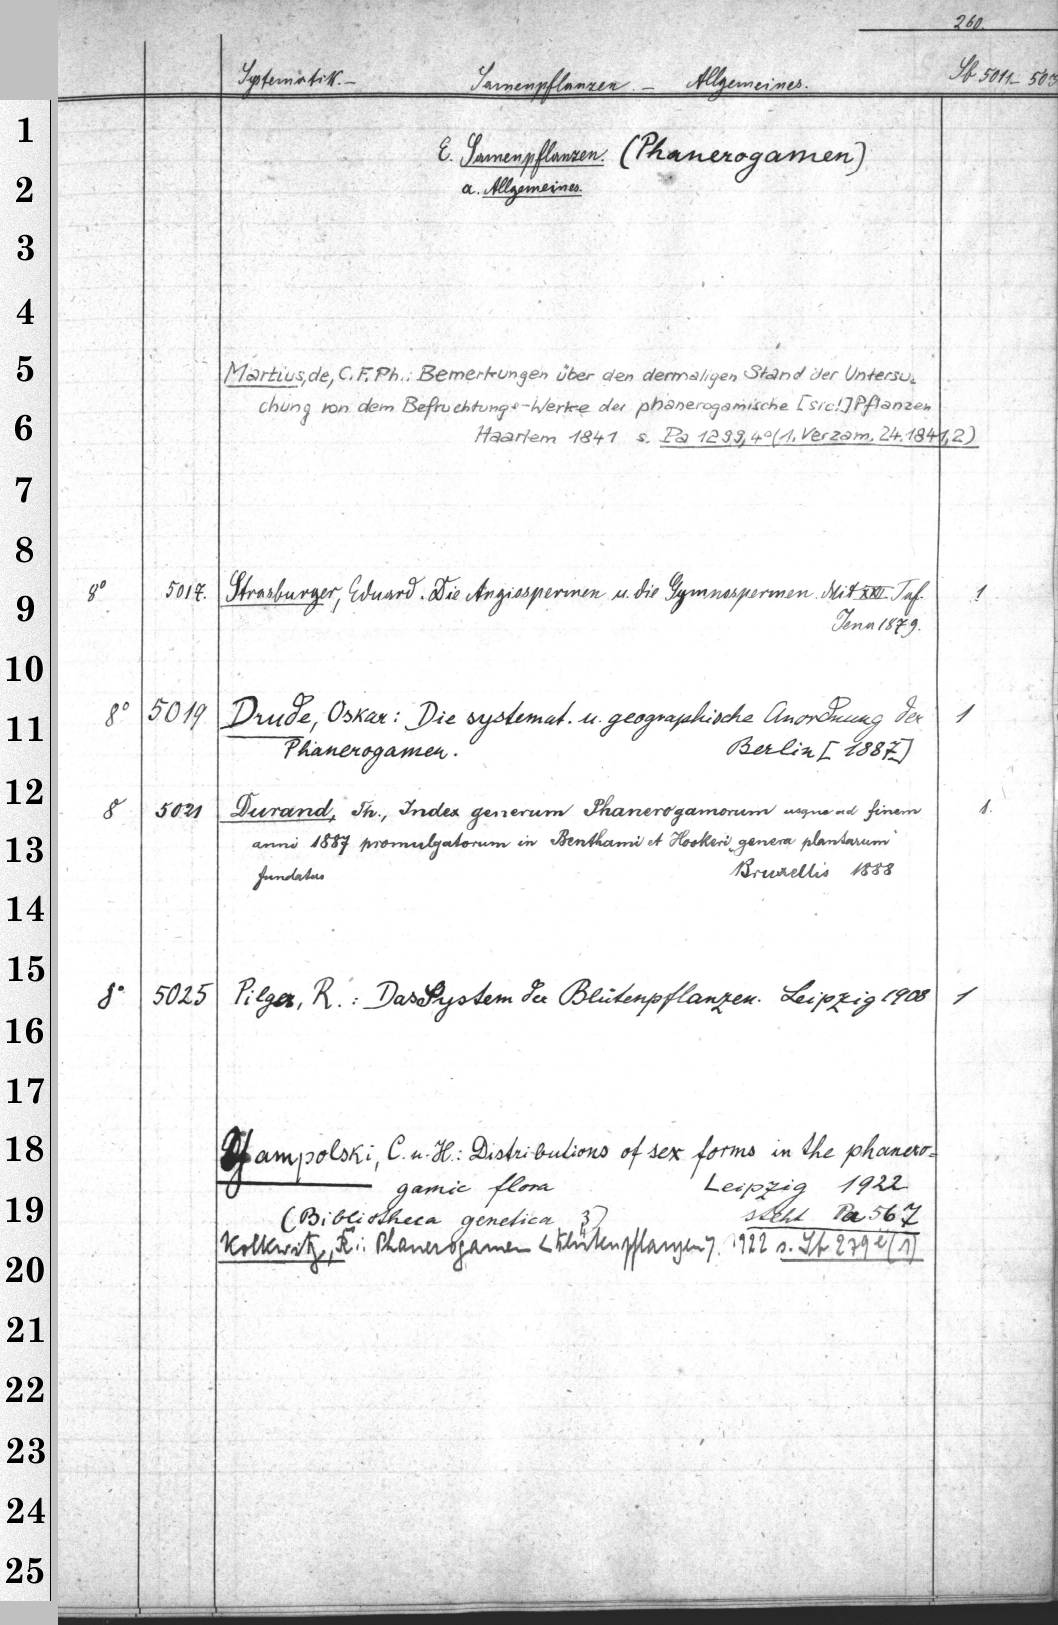 260.
Systematik. — Samenpflanzen. — Allgemeines. Sb 5011 - 503
E. Samenpflanzen. (Phanerogamen)
a. Allgemeines.
Martius, de, C. F. Ph.: Bemerkungen über den dermaligen Stand der Untersu-
chung von dem Befruchtungs-Werke der phanerogamische [sic!] Pflanzen
Haarlem 1841 s. Pa 1299, 4° (1. Verzam. 24. 1841, 2)
8° 5017. Strasburger, Eduard. Die Angiospermen u. die Gymnospermen. Mit XXII Taf. 1
Jena 1879.
8° 5019 Drude, Oskar: Die systemat. u. geographische Anordnung der 1
Phanerogamen. Berlin [1887]
8 5021 Durand, Th., Index generum Phanerogamorum usque ad finem 1.
anni 1887 promulgatorum in Benthami et Hookeri „genera plantarum"
fundatus Bruxellis 1888
8° 5025 Pilger, R.: Das System der Blütenpflanzen. Leipzig 1908 1
Yampolski, C. u. H.: Distributions of sex forms in the phanero=
gamic flora Leipzig 1922
(Bibliotheca genetica 3) steht Pa 567
Kolkwitz, R.: Phanerogamen (Blütenpflanzen). 1922 s. Sb 279 (1)
1
2
3
4
5
6
7
8
9
10
11
12
13
14
15
16
17
18
19
20
21
22
23
24
25